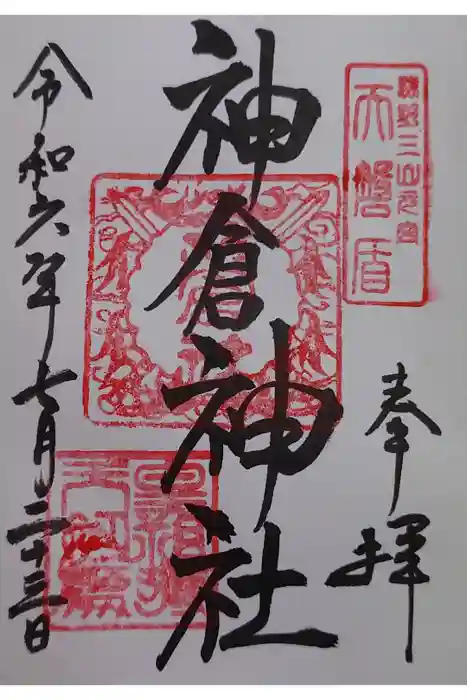 奉拝
熊野三山元宮
天磐盾
神倉神社
令和六年七月二十三日